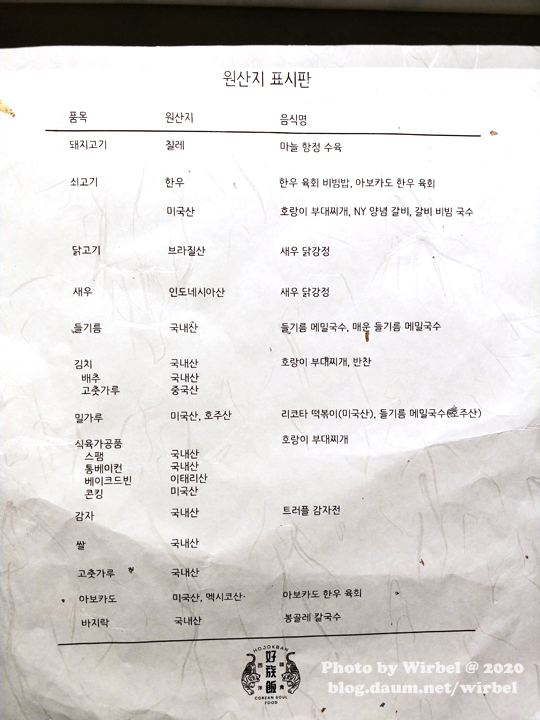 원산지 표시판
품목 원산지 음식명
돼지고기 칠레 마늘 항정 수육
쇠고기 한우 한우 육회 비빔밥, 아보카도 한우 육회
미국산 호랑이 부대찌개, NY 양념 갈비, 갈비 비빔 국수
닭고기 브라질산 새우 닭강정
새우 인도네시아산 새우 닭강정
들기름 국내산 들기름 메밀국수, 매운 들기름 메밀국수
김치 국내산 호랑이 부대찌개, 반찬
배추 국내산
고춧가루 중국산
밀가루 미국산, 호주산 리코타 떡볶이(미국산), 들기름 메밀국수(호주산)
식육가공품 호랑이 부대찌개
스팸 국내산
통베이컨 국내산
베이크드빈 이태리산
콘킹 미국산
감자 국내산 트러플 감자전
쌀 국내산
고춧가루 국내산
아보카도 미국산, 멕시코산 아보카도 한우 육회
바지락 국내산 봉골레 칼국수
HOJOKBAN
好族飯
COREAN SOUL
FOOD
Photo by Wirbel @ 2020
blog.daum.net/wirbel